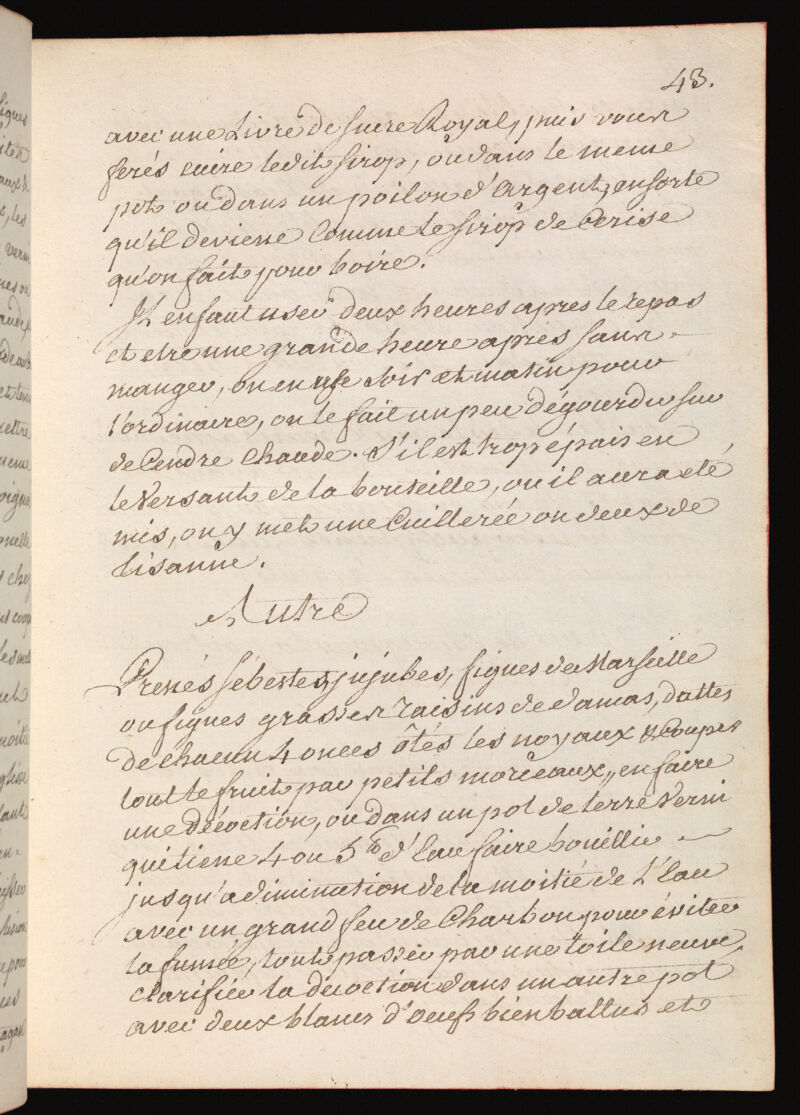 43.
avec une Livre de sucre Royal, puis vous
ferés cuire ledit sirop, ou dans le meme
pot ou dans un poilon d'Argent, ensorte
qu'il deviene Comme le sirop de Cerise
qu'on fait pour boire.
Il en faut user deux heures apres le repas
et etre une grande heure après sans
manger, on en use soir et matin pour
l'ordinaire, on le fait un peu dégourdir sur
de Cendre Chaude. S'il est trop épais en
le Versant de la bouteille, ou il aura eté
mis, on y met une Cuillerée ou deux de
tisanne.
Autre
Prenés sébestes, jujubes, figues de Marseille
ou figues grasses raisins de damas, dattes
de chacun 4 onces ôtés les noyaux & Coupés
tout le fruit par petits morceaux, en faire
une décoction, ou dans un pot de terre Verni
qui tiene 4 ou 5 lb d'Eau faire bouillir
jusqu'a diminution de la moitié de L'Eau
avec un grand feu de Charbon pour éviter
la fumée, tout passer par une toile neuve,
clarifier la decoction dans un autre pot
avec deux blancs d'oeufs bien battus et